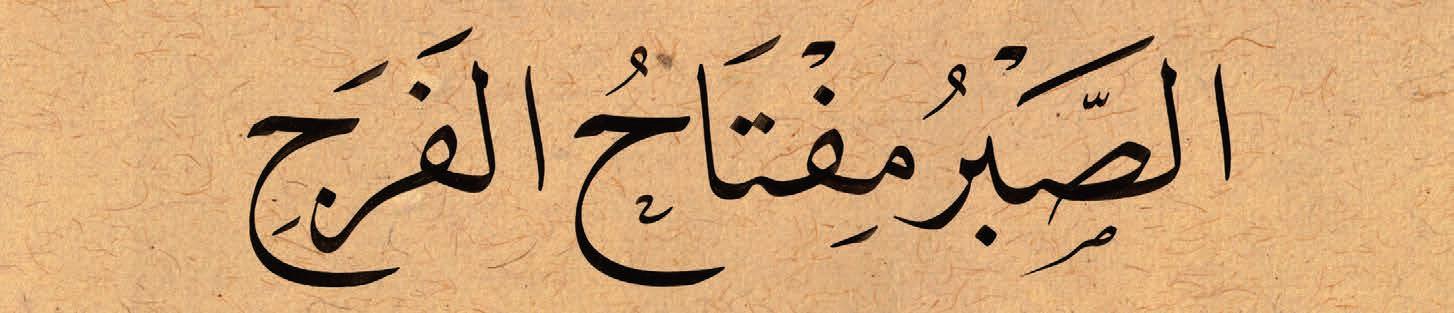 الصَّبْرُ مِفْتَاحُ الفَرَجِ